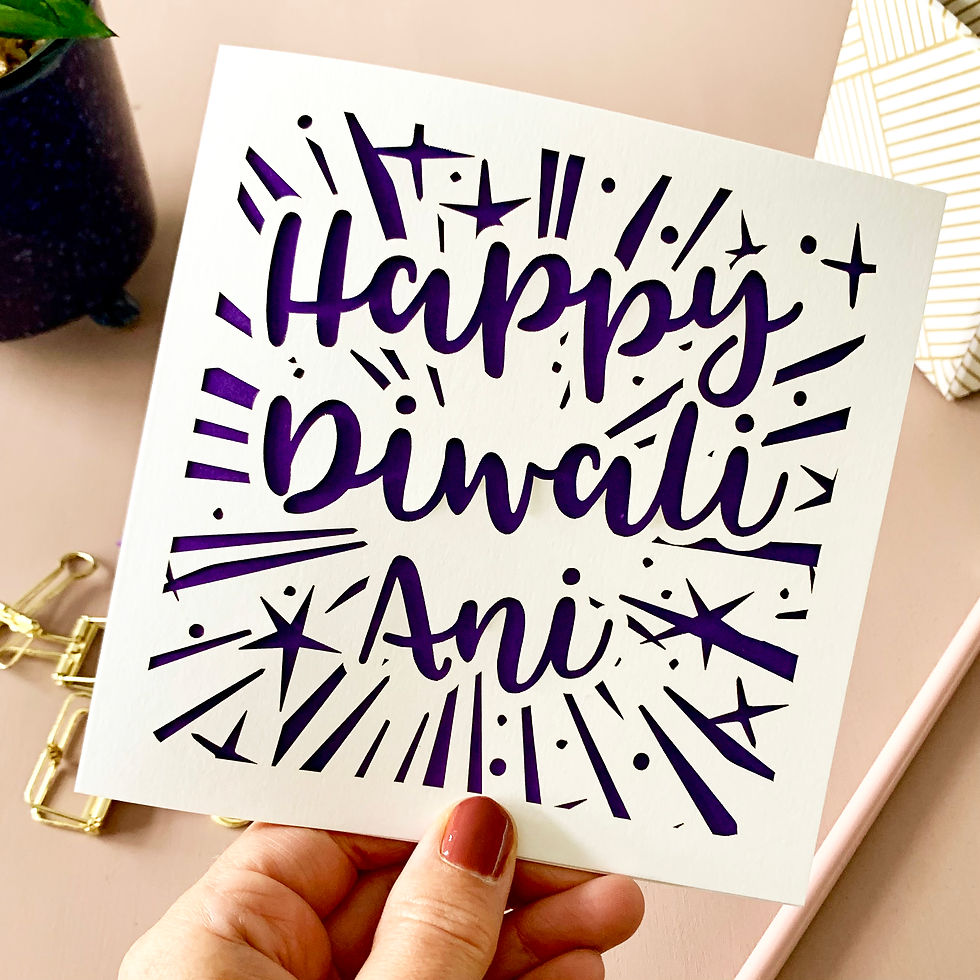 Happy
Diwali
Ani